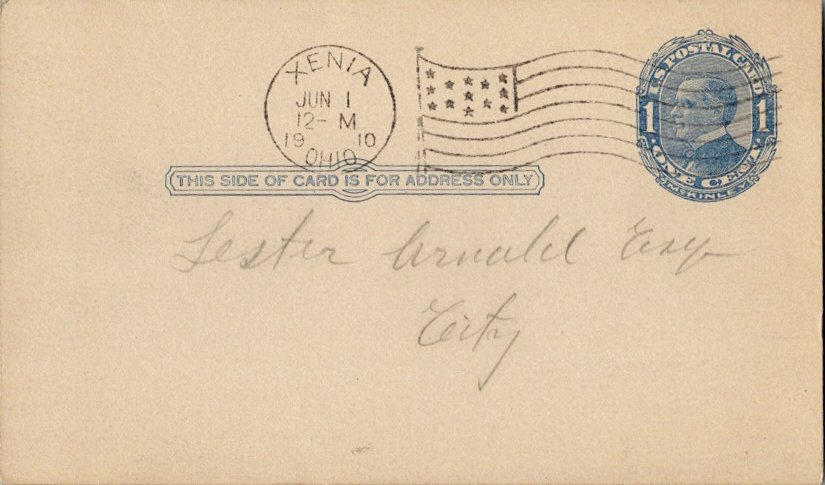 XENIA
JUN 1
12- M
19 10
OHIO
U.S. POSTAL CARD
1 1
ONE CENT
McKINLEY
THIS SIDE OF CARD IS FOR ADDRESS ONLY
Lester Arnold Esq
City